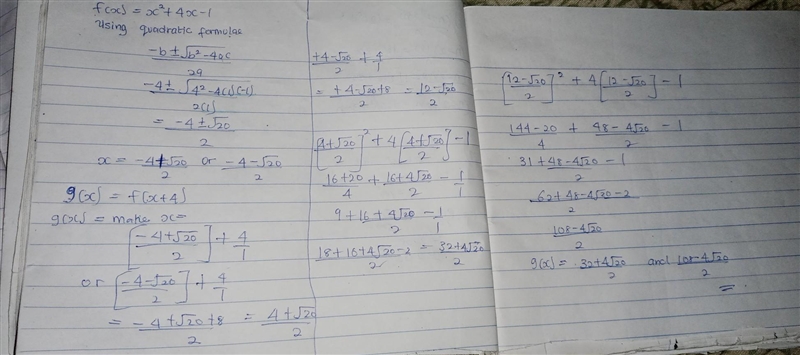 f(x) = x² + 4x - 1
Using quadratic formulas
-b ± √b² - 4ac
2a
-4 ± √4² - 4(1)(-1)
2(1)
= -4 ± √20
2
x = -4+√20 or -4-√20
2 2
g(x) = f(x+4)
g(x) = make x =
[-4+√20] + 4
2 1
or [-4-√20] + 4
2 1
= -4+√20+8 = 4+√20
2 2
+4-√20 + 4
2 1
= +4-√20+8 = 12-√20
2 2
[4+√20]² + 4[4+√20] - 1
2 2
16+20 + 16+4√20 - 1
4 2 1
9+16+4√20 - 1
2 1
18+16+4√20-2 = 32+4√20
2 2
[12-√20]² + 4[12-√20] - 1
2 2
144-20 + 48-4√20 - 1
4 2
31+48-4√20 - 1
2
62+48-4√20-2
2
108-4√20
2
g(x) = 32+4√20 and 108-4√20
2 2